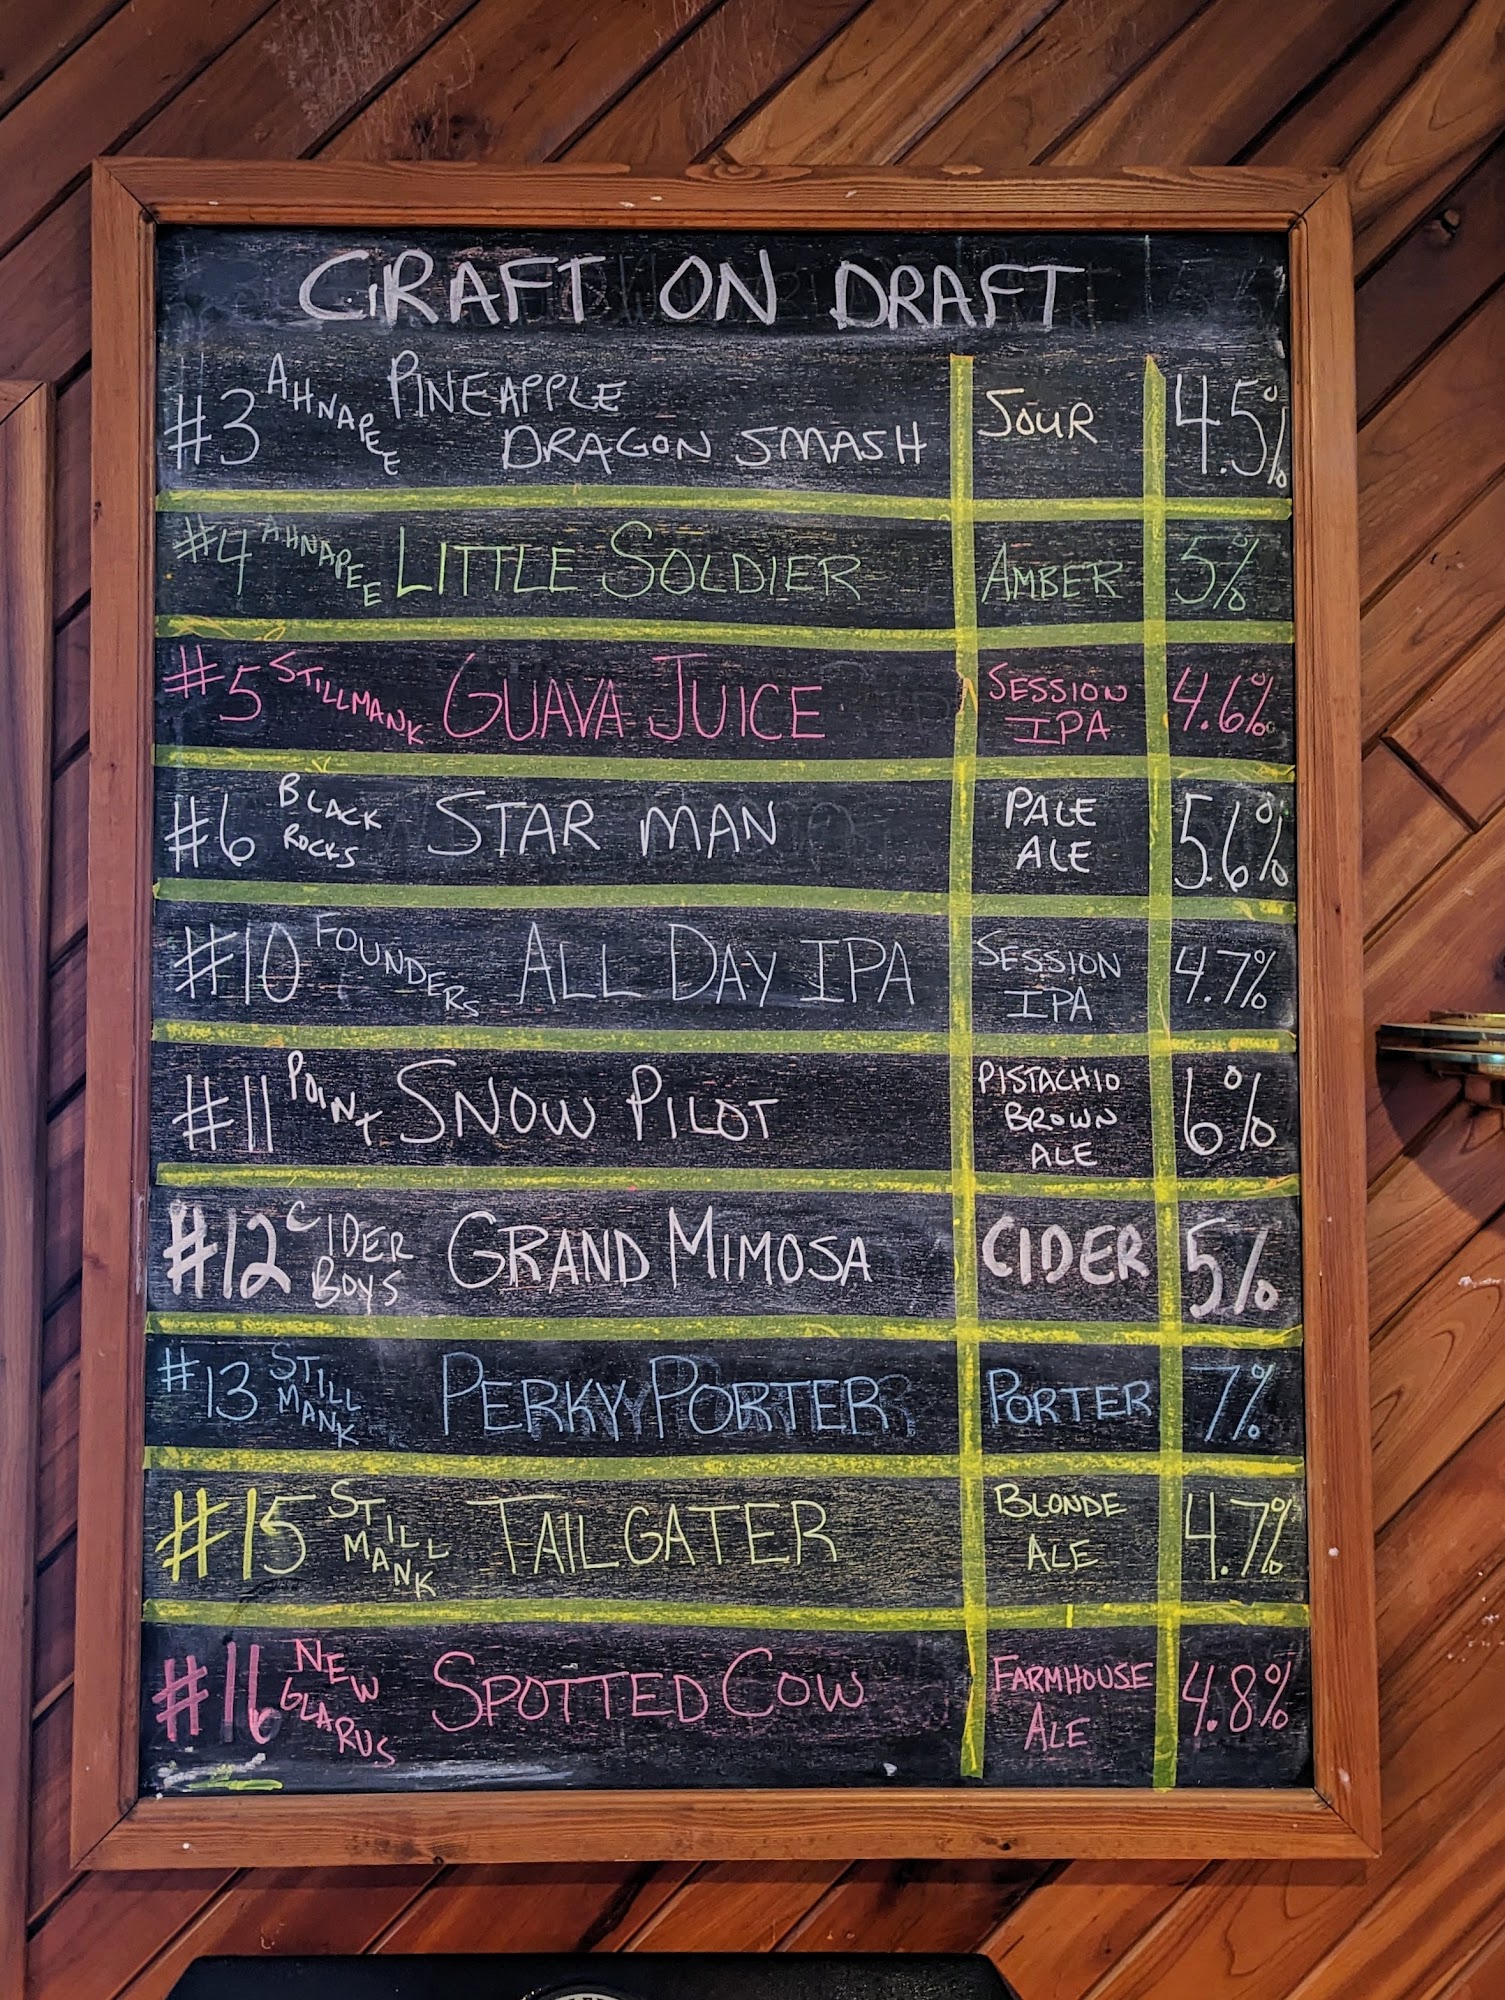 CRAFT ON DRAFT
#3 AHNAPEE PINEAPPLE DRAGON SMASH SOUR 4.5%
#4 AHNAPEE LITTLE SOLDIER AMBER 5%
#5 STILLMANK GUAVA JUICE SESSION IPA 4.6%
#6 BLACK ROCKS STAR MAN PALE ALE 5.6%
#10 FOUNDERS ALL DAY IPA SESSION IPA 4.7%
#11 POINT SNOW PILOT PISTACHIO BROWN ALE 6%
#12 CIDER BOYS GRAND MIMOSA CIDER 5%
#13 STILLMANK PERKY PORTER PORTER 7%
#15 STILLMANK TAILGATER BLONDE ALE 4.7%
#16 NEW GLARUS SPOTTED COW FARMHOUSE ALE 4.8%